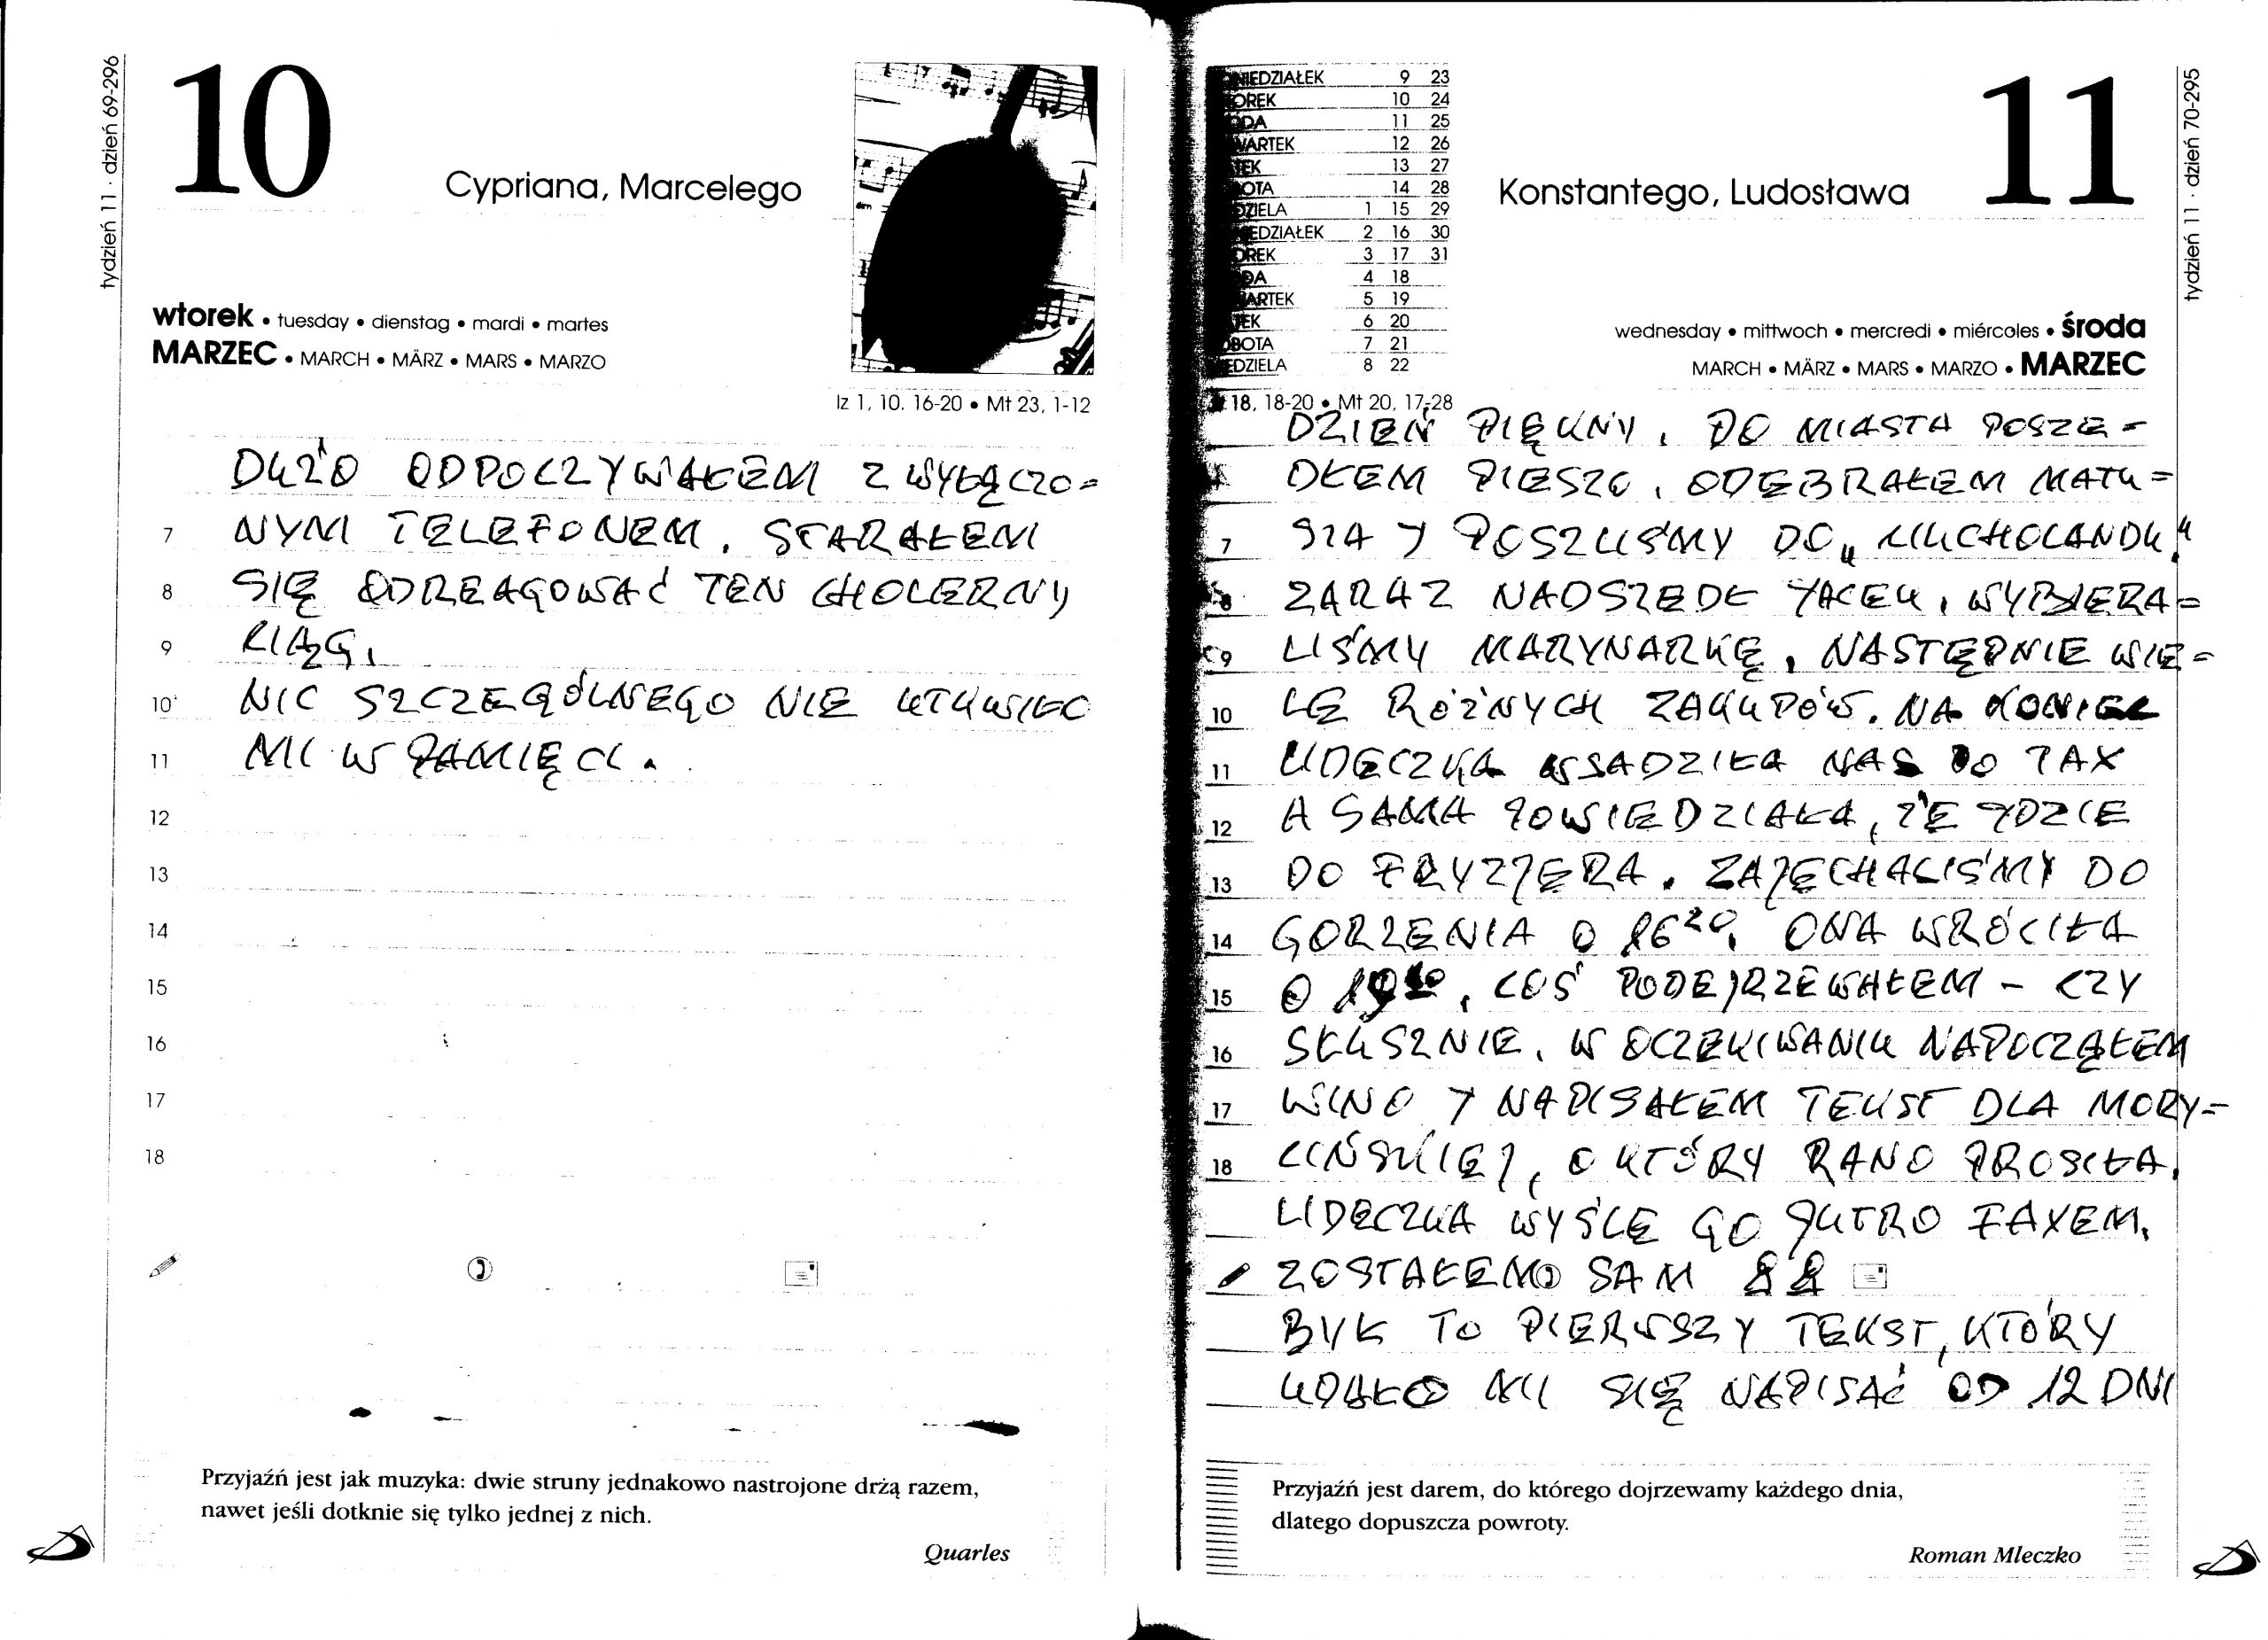 tydzień 11 · dzień 69-296
10
Cypriana, Marcelego
wtorek • tuesday • dienstag • mardi • martes
MARZEC • MARCH • MÄRZ • MARS • MARZO
Iz 1, 10. 16-20 • Mt 23, 1-12
DUŻO ODPOCZYWAŁEM Z WYŁĄCZO=
7 NYM TELEFONEM. STARAŁEM
8 SIĘ ODREAGOWAĆ TEN CHOLERNY
9 CIĄG.
10 NIC SZCZEGÓLNEGO NIE UTKWIŁO
11 MI W PAMIĘCI.
12
13
14
15
16
17
18
Przyjaźń jest jak muzyka: dwie struny jednakowo nastrojone drżą razem,
nawet jeśli dotknie się tylko jednej z nich.
Quarles
NIEDZIAŁEK 9 23
OREK 10 24
ODA 11 25
WARTEK 12 26
TEK 13 27
OTA 14 28
DZIELA 1 15 29
EDZIAŁEK 2 16 30
OREK 3 17 31
DA 4 18
ARTEK 5 19
TEK 6 20
BOTA 7 21
EDZIELA 8 22
Konstantego, Ludosława
11
tydzień 11 · dzień 70-295
wednesday • mittwoch • mercredi • miércoles • środa
MARCH • MÄRZ • MARS • MARZO • MARZEC
18, 18-20 • Mt 20, 17-28
DZIEŃ PIĘKNY. DO MIASTA POSZE=
DŁEM PIESZO. ODEBRAŁEM MATU=
7 SIA Y POSZLIŚMY DO „MUCHOLANDU."
8 ZARAZ NADSZEDŁ YACEK. WYBIERA=
9 LIŚMY MARYNARKĘ, NASTĘPNIE WIE=
10 LE RÓŻNYCH ZAKUPÓW. NA KONIEC
11 LIDECZKA WSADZIŁA NAS DO TAX
12 A SAMA POWIEDZIAŁA, ŻE YDZIE
13 DO FRYZJERA. ZAJECHALIŚMY DO
14 GORZENIA O 16 20. ONA WRÓCIŁA
15 O COŚ PODEJRZEWAŁEM – CZY
16 SŁUSZNIE. W OCZEKIWANIU NAPOCZĄŁEM
17 WINO Y NAPISAŁEM TEKST DLA MORY=
18 CIŃSKIEJ, O KTÓRY RANO PROSIŁA.
LIDECZKA WYŚLE GO JUTRO FAXEM.
ZOSTAŁEM SAM
BYŁ TO PIERWSZY TEKST, KTÓRY
UDAŁO MI SIĘ NAPISAĆ OD 12 DNI
Przyjaźń jest darem, do którego dojrzewamy każdego dnia,
dlatego dopuszcza powroty.
Roman Mleczko